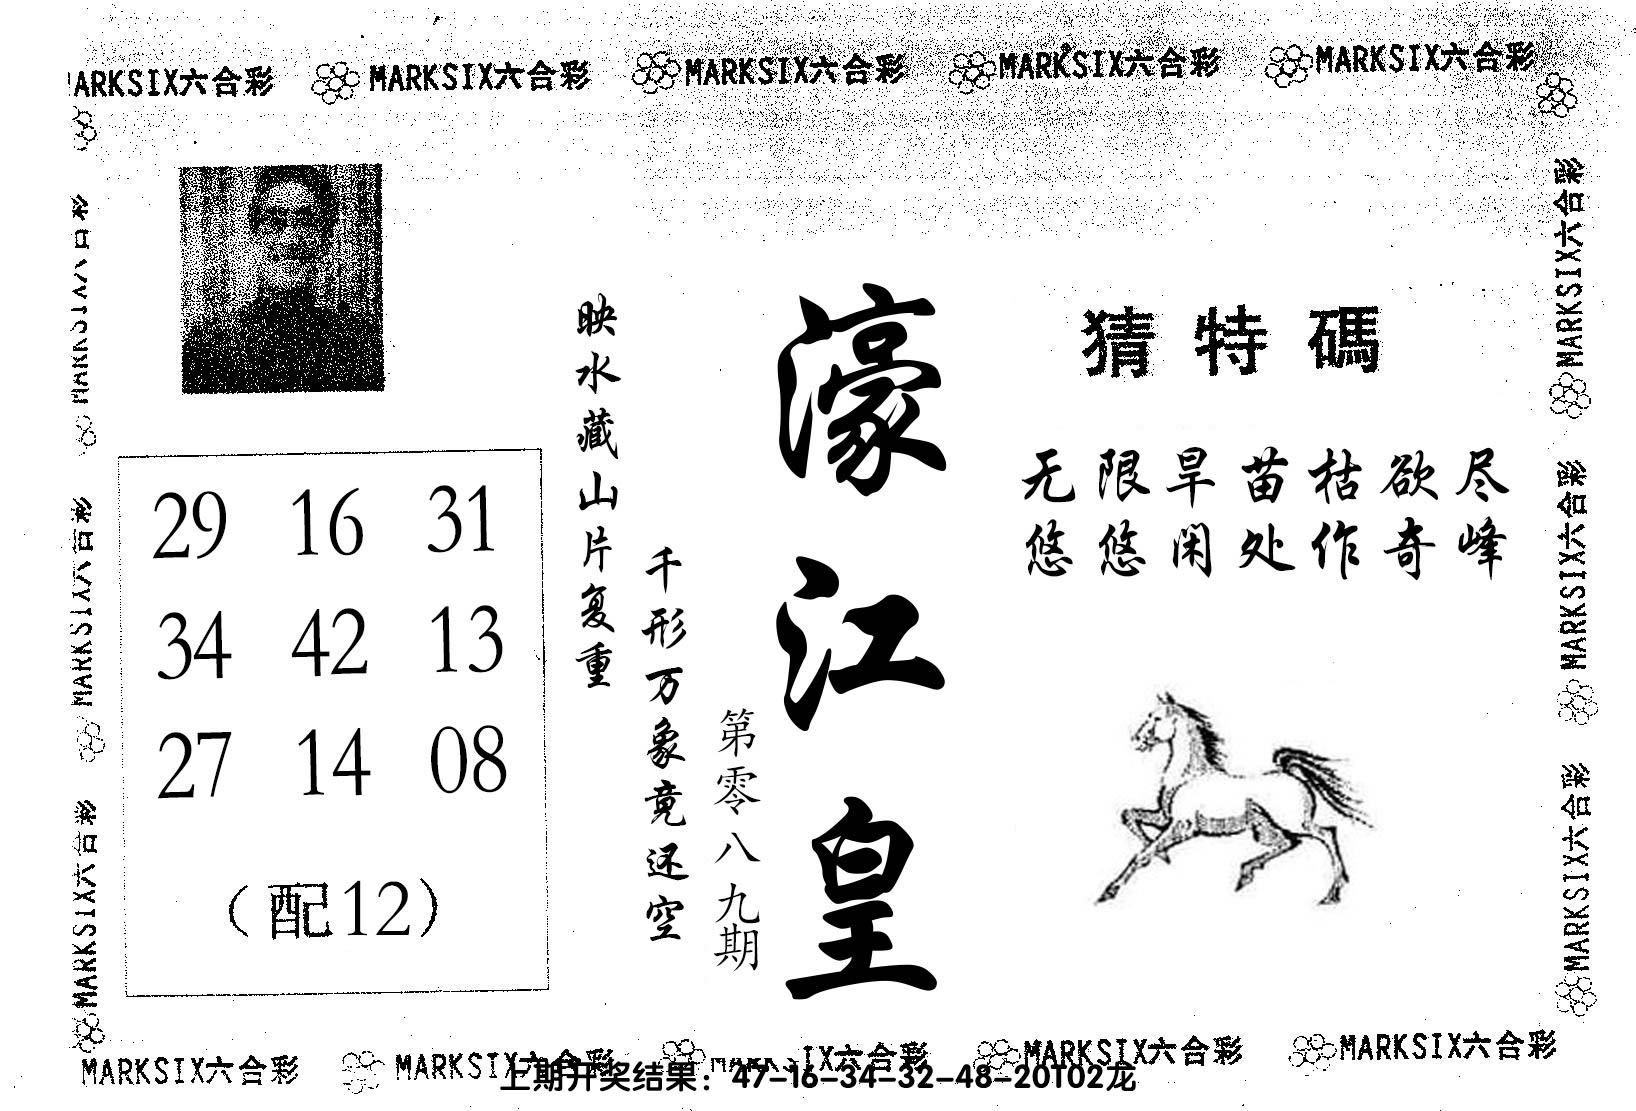 MARKSIX六合彩 MARKSIX六合彩 MARKSIX六合彩 MARKSIX六合彩 MARKSIX六合彩
猜特碼
无限旱苗枯欲尽
悠悠闲处作奇峰
濠江皇
第零八九期
映水藏山片复重
千形万象竟还空
29 16 31
34 42 13
27 14 08
(配12)
MARKSIX六合彩
MARKSIX六合彩
MARKSIX六合彩
MARKSIX六合彩
MARKSIX六合彩
MARKSIX六合彩
MARKSIX六合彩 MARKSIX六合彩 MARKSIX六合彩 MARKSIX六合彩 MARKSIX六合彩
上期开奖结果：47-16-34-32-48-20T02龙